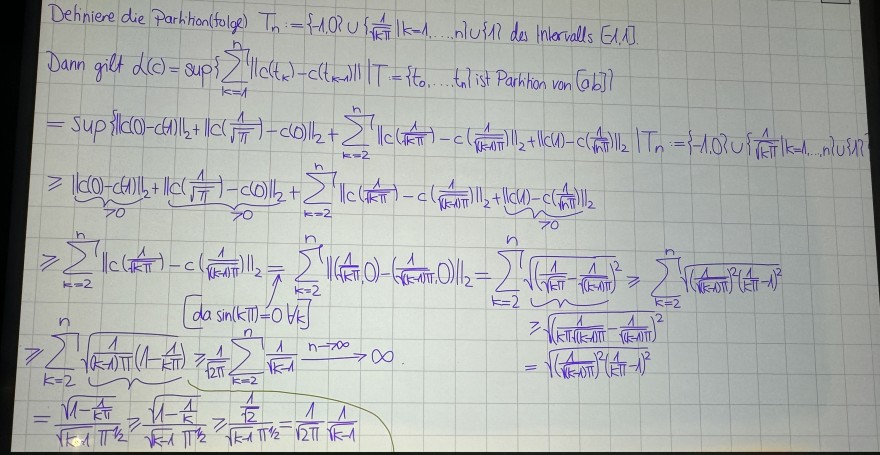 Definiere die Partition(folge) Tₙ := {-1,0} ∪ {1/√(kπ) | k=1,...,n} ∪ {1} des Intervalls [-1,1].
Dann gilt α(c) = sup{ ∑_{k=1}^{n} ||c(t_k) - c(t_{k-1})|| | T = {t₀,...,tₙ} ist Partition von [a,b]}
= sup{ ||c(0)-c(-1)||₂ + ||c(1/√π) - c(0)||₂ + ∑_{k=2}^{n} ||c(1/√(kπ)) - c(1/√((k-1)π))||₂ + ||c(1) - c(1/√(nπ))||₂ | Tₙ := {-1,0} ∪ {1/√(kπ) | k=1,...,n} ∪ {1}}
≥ ||c(0)-c(-1)||₂ + ||c(1/√π) - c(0)||₂ + ∑_{k=2}^{n} ||c(1/√(kπ)) - c(1/√((k-1)π))||₂ + ||c(1) - c(1/√(nπ))||₂
≥0 ≥0 ≥0
≥ ∑_{k=2}^{n} ||c(1/√(kπ)) - c(1/√((k-1)π))||₂ = ∑_{k=2}^{n} ||(1/√(kπ),0) - (1/√((k-1)π),0)||₂ = ∑_{k=2}^{n} √((1/√(kπ) - 1/√((k-1)π))²) ≥ ∑_{k=2}^{n} √((1/√((k-1)π))² (1/(kπ) - 1)²)
[da sin(kπ)=0 ∀k]
≥ √((1/(√(kπ)√((k-1)π)) - 1/√((k-1)π))²)
= √((1/√((k-1)π))² (1/(kπ) - 1)²)
≥ ∑_{k=2}^{n} √(1/((k-1)π) (1 - 1/(kπ))) ≥ 1/√(2π) ∑_{k=2}^{n} 1/√(k-1) —n→∞→ ∞.
= √(1 - 1/(kπ)) / (√(k-1) π^{1/2}) ≥ √(1 - 1/k) / (√(k-1) π^{1/2}) ≥ (1/√2) / (√(k-1) π^{1/2}) = 1/√(2π) 1/√(k-1)